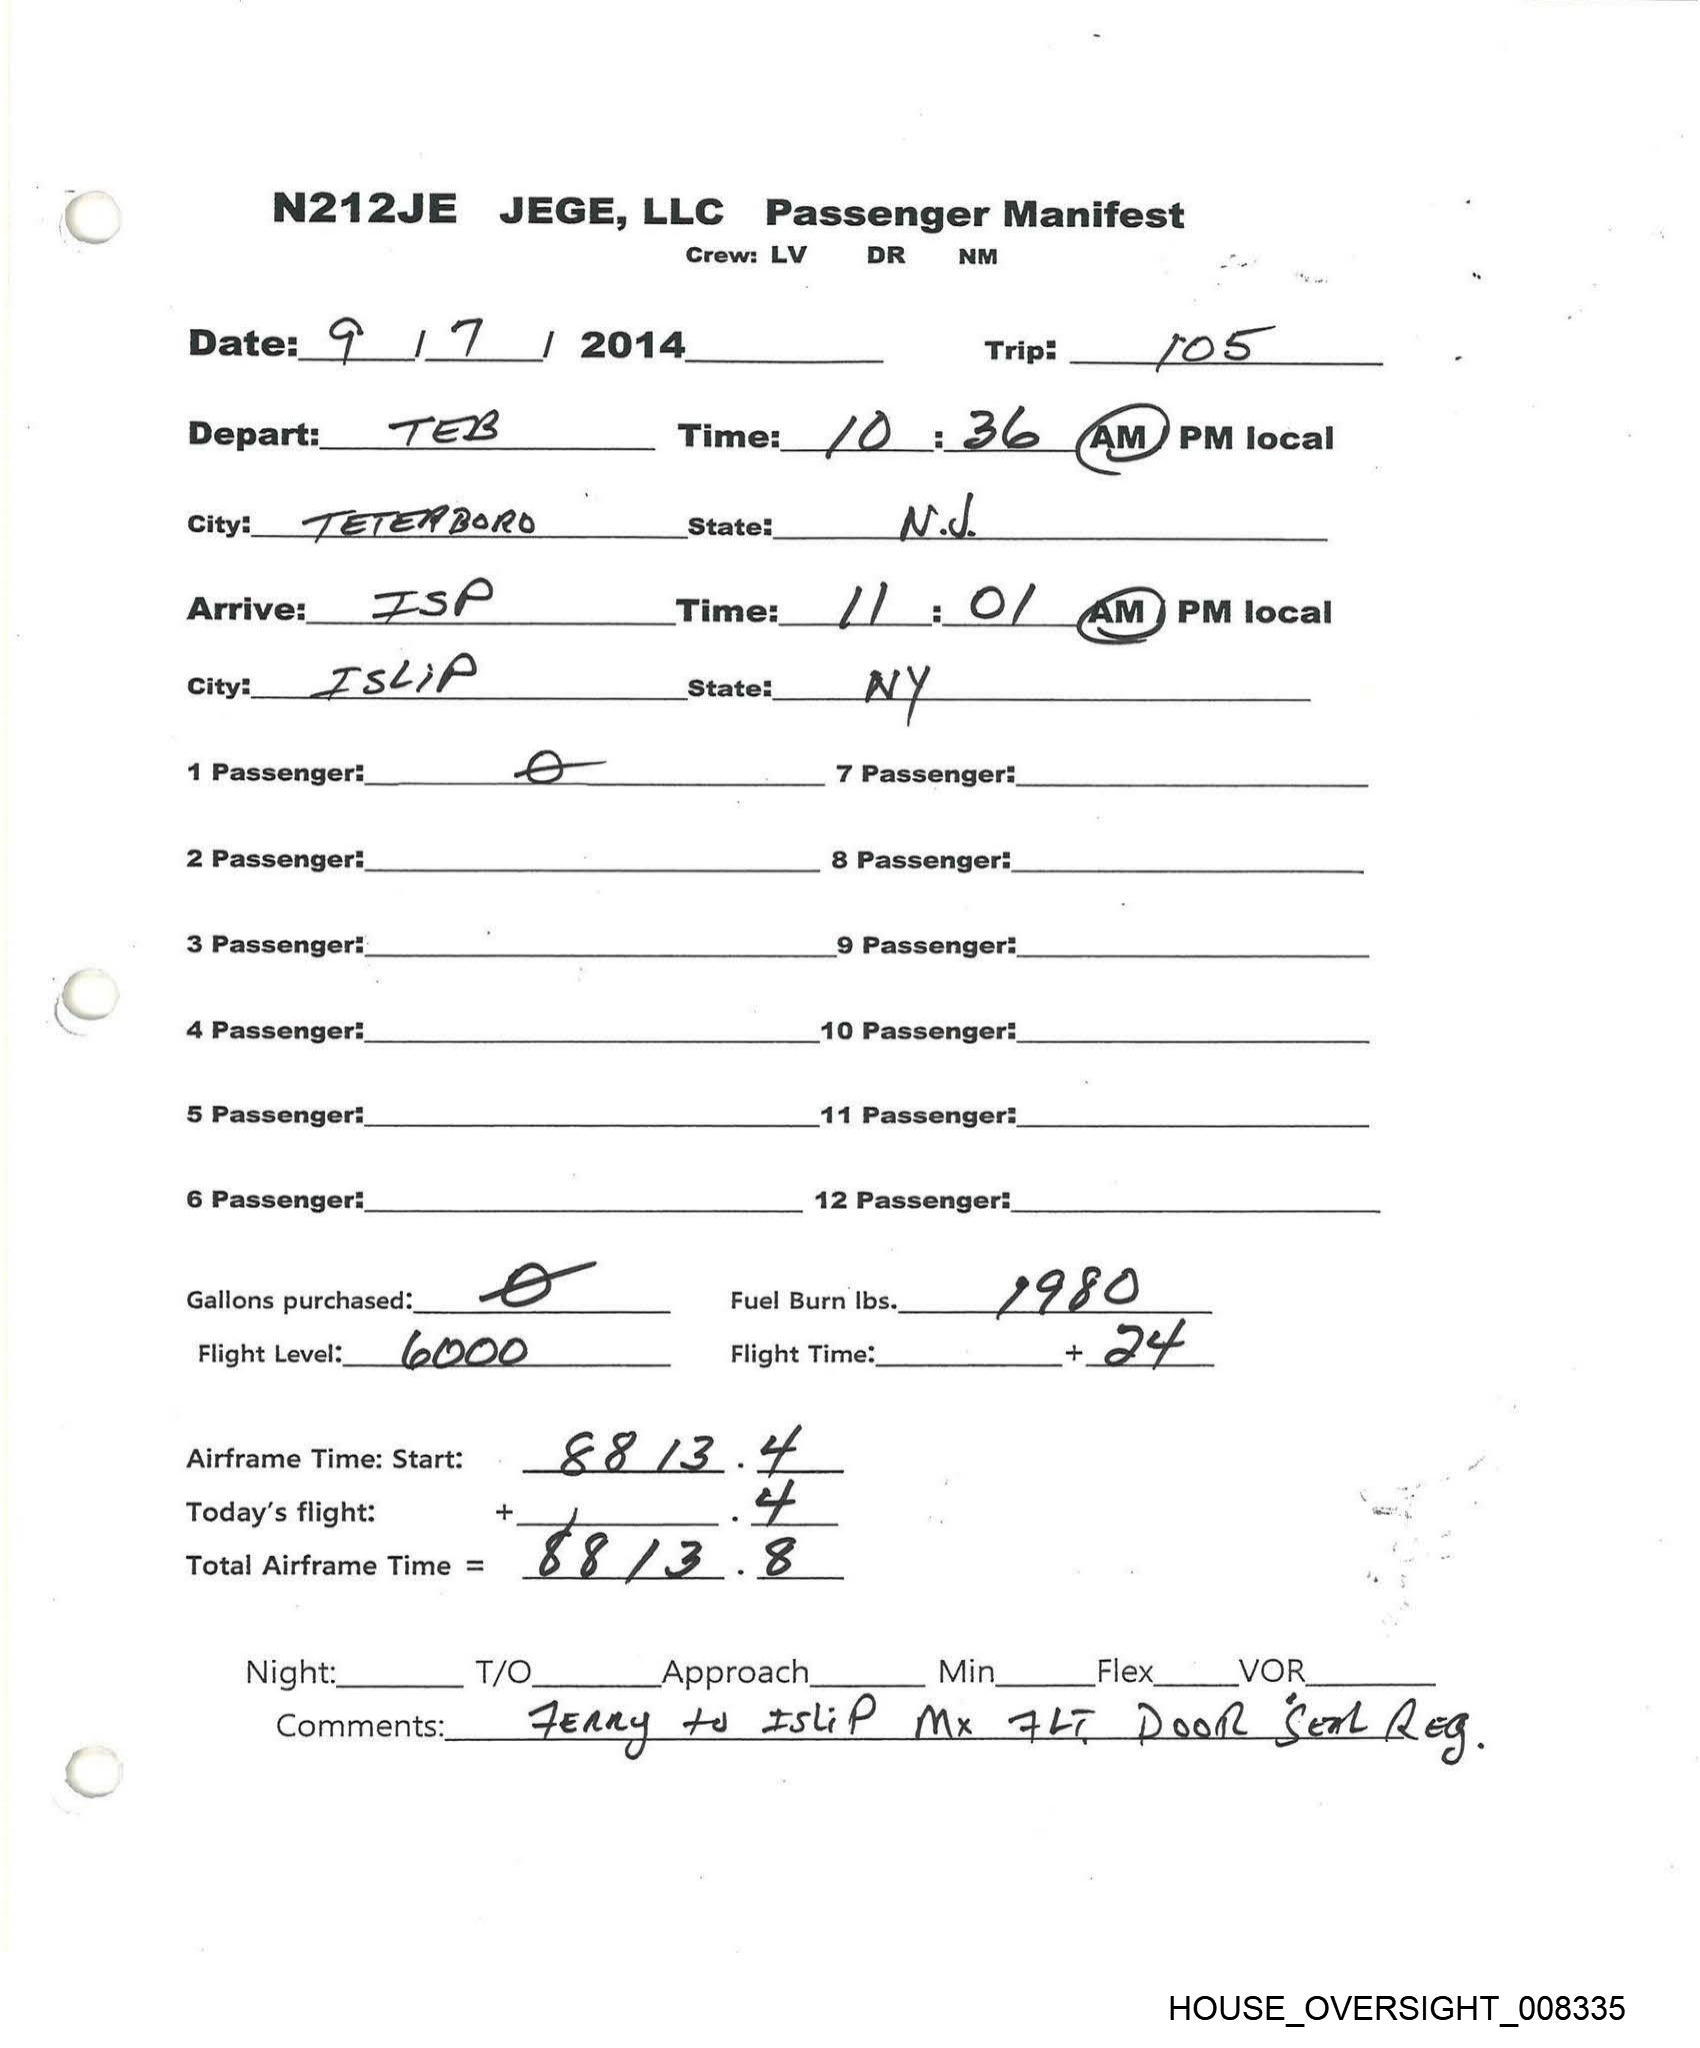 N212JE JEGE, LLC Passenger Manifest
Crew: LV DR NM
Date: 9 / 7 / 2014 Trip: 105
Depart: TEB Time: 10 : 36 AM PM local
City: TETERBORO State: N.J.
Arrive: ISP Time: 11 : 01 AM PM local
City: ISLIP State: NY
1 Passenger: 0 7 Passenger:
2 Passenger: 8 Passenger:
3 Passenger: 9 Passenger:
4 Passenger: 10 Passenger:
5 Passenger: 11 Passenger:
6 Passenger: 12 Passenger:
Gallons purchased: 0 Fuel Burn lbs. 1980
Flight Level: 6000 Flight Time: + 24
Airframe Time: Start: 8813 . 4
Today's flight: + . 4
Total Airframe Time = 8813 . 8
Night: T/O Approach Min Flex VOR
Comments: FERRY to ISLIP MX FLT DOOR SEAL REG.
HOUSE_OVERSIGHT_008335